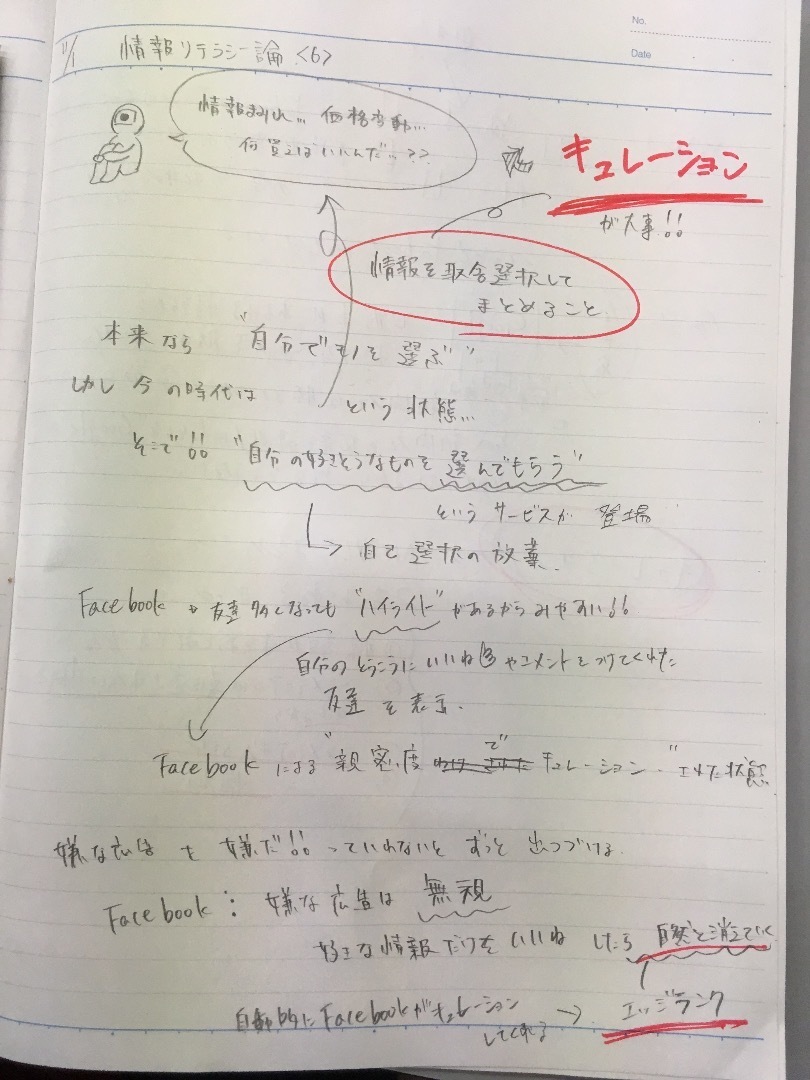 No.
Date
11/1 情報リテラシー論 <6>
情報まみれ... 価格変動...
何買えばいいんだ..??
キュレーション
が大事!!
情報を取捨選択して
まとめること
本来なら "自分でモノを選ぶ"
しかし今の時代は という状態...
そこで!! "自分の好きそうなものを選んでもらう"
というサービスが登場
→ 自己選択の放棄.
Facebook → 友達多くなっても "ハイライト" があるからみやすい!!
自分のとうこうにいいねやコメントをつけてくれた
友達を表示.
Facebookによる "親密度でキュレーション." された状態
嫌な広告も嫌だ!!っていわないとずっと出つづける.
Facebook : 嫌な広告は無視
好きな情報だけをいいねしたら自然と消えていく
自動的にFacebookがキュレーション
してくれる → エッジランク